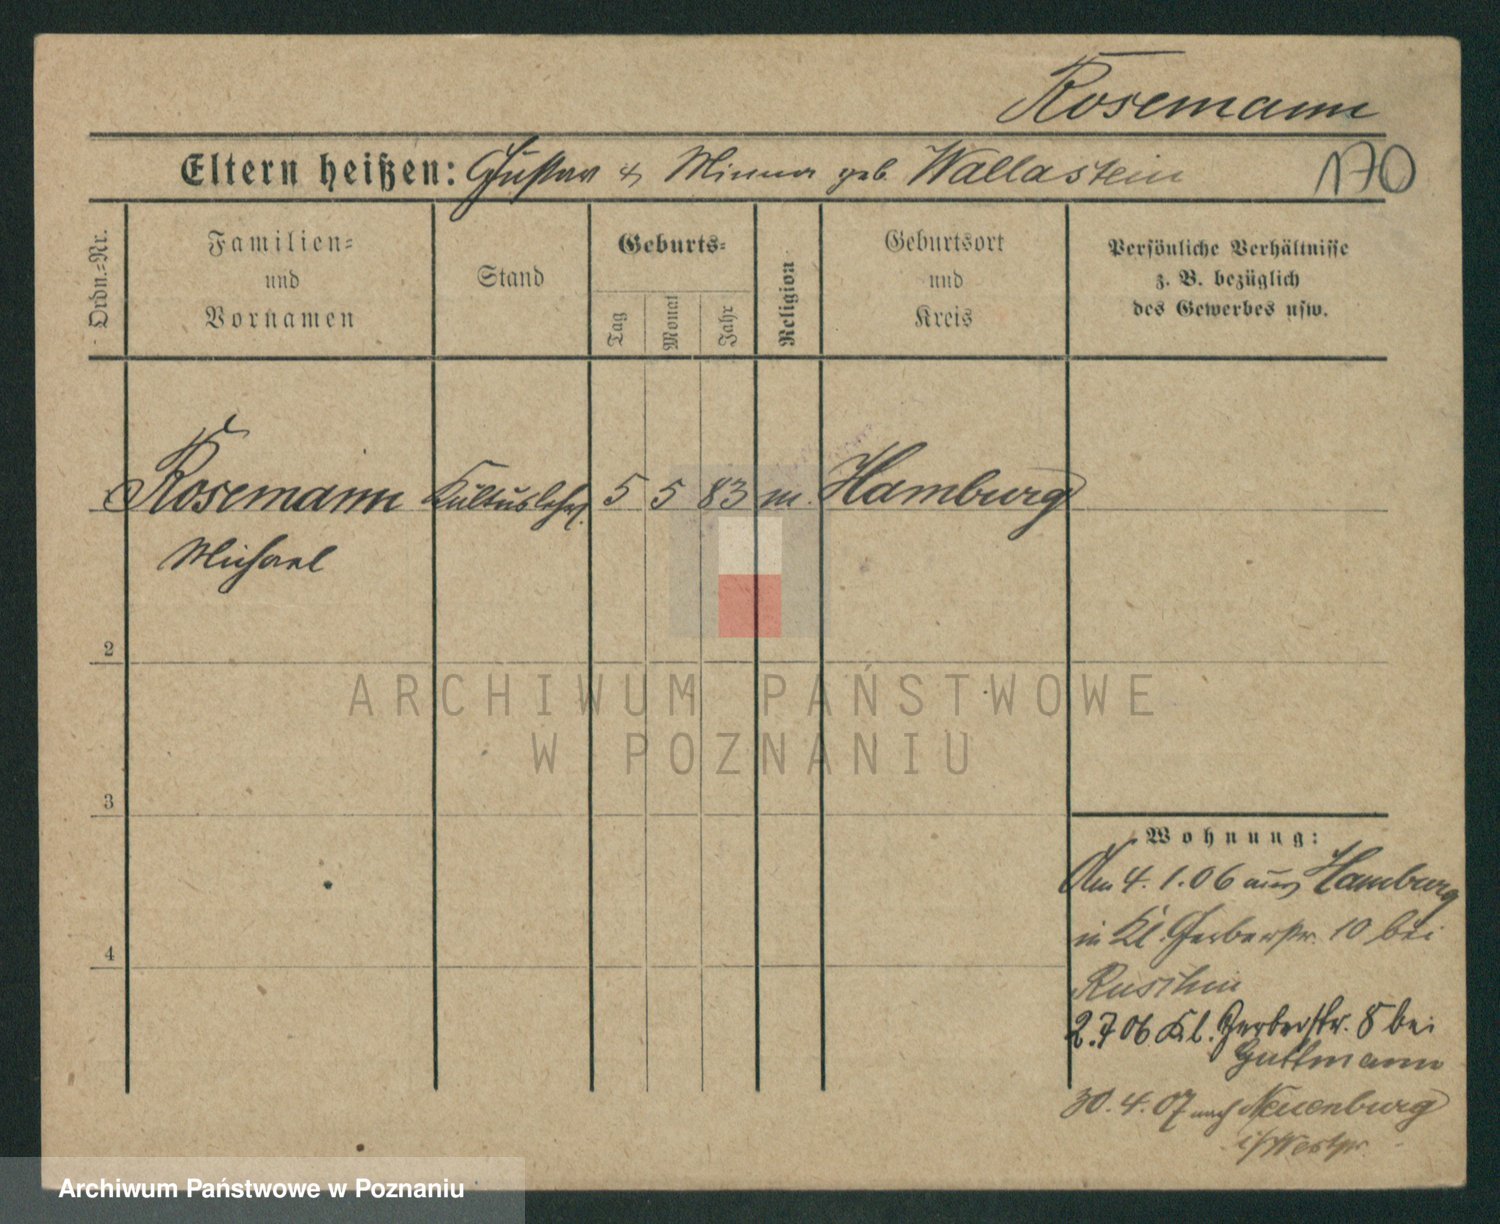 Rosemann
Eltern heißen: Gustav & Minna geb. Wallastein
170
Ordn.=Nr.
Familien=
und
Vornamen
Stand
Geburts=
Tag
Monat
Jahr
Religion
Geburtsort
und
Kreis
Persönliche Verhältnisse
z. B. bezüglich
des Gewerbes usw.
Rosemann Kultuslehr. 5 5 83 m. Hamburg
Michael
2
3
4
ARCHIWUM PAŃSTWOWE
W POZNANIU
Wohnung:
Am 4.1.06 aus Hamburg
in Kl. Gerberstr. 10 bei
2.7 06 Kl. Gerberstr. 8 bei
Guttmann
30.4.07 nach Neuenburg
i/Westpr.
Archiwum Państwowe w Poznaniu